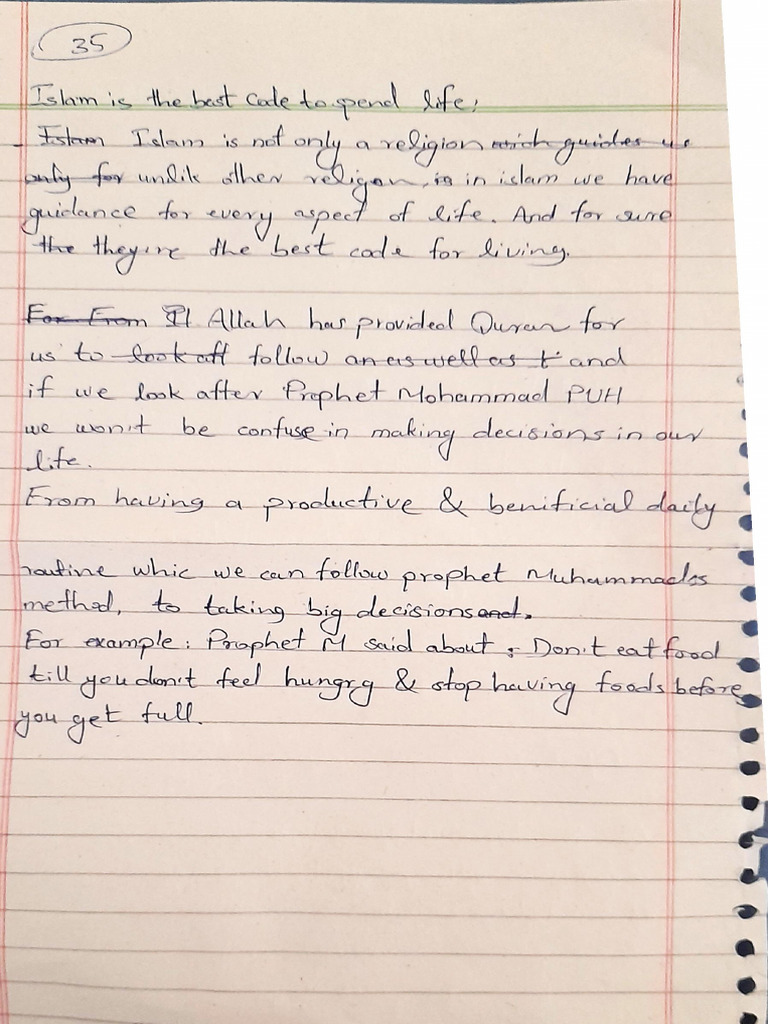 35
Islam is the best code to spend life,
Islam Islam is not only a religion which guides us
only for unlik other religon, is in islam we have
guidance for every aspect of life. And for sure
the they're the best code for living.
For From Allah has provided Quran for
us to look aft follow an as well as t and
if we look after Prophet Mohammad PUH
we won't be confuse in making decisions in our
life.
From having a productive & benificial daily
routine whic we can follow prophet Muhammads
method, to taking big decisions and.
For example: Prophet M said about, Don't eat food
till you don't feel hungry & stop having foods before
you get full.